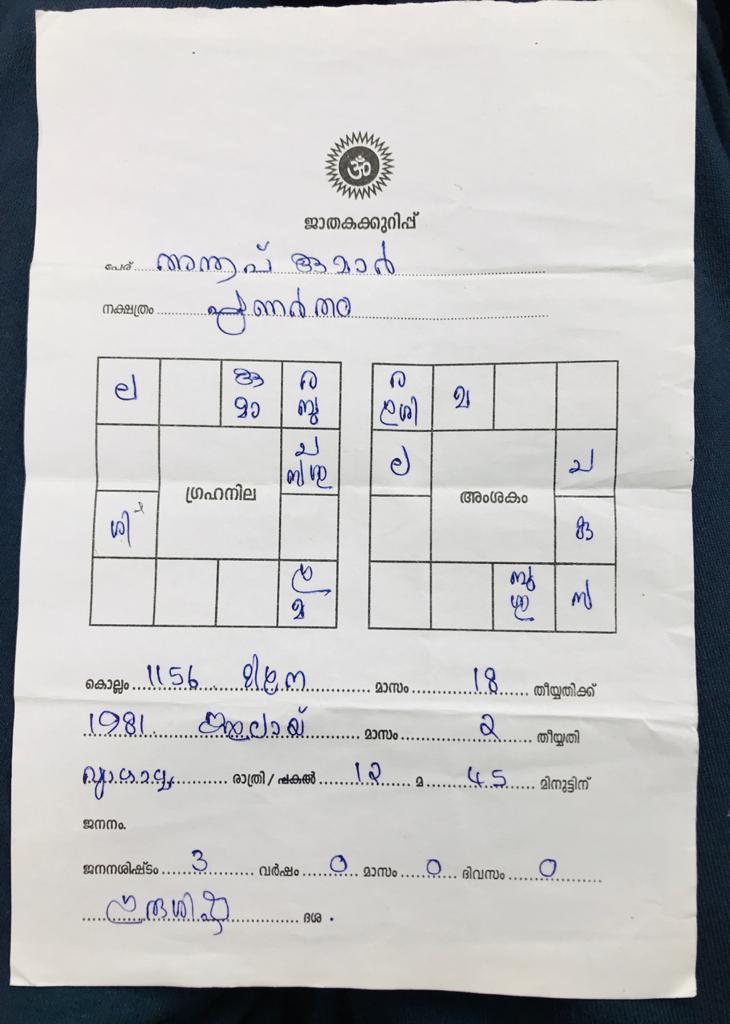 ॐ
ജാതകക്കുറിപ്പ്
പേര് അനൂപ് കുമാർ
നക്ഷത്രം പുണർതം
ല കു ര ര ല
മാ ബു ശി
ച ല ച
ഗ്രഹനില അംശകം
ശി കു
മ ബു
കൊല്ലം 1156 മിഥുന മാസം 18 തീയ്യതിക്ക്
1981 ജൂലായ് മാസം 2 തീയ്യതി
വ്യാഴാഴ്ച രാത്രി / പകൽ 12 മ 45 മിനുട്ടിന്
ജനനം.
ജനനശിഷ്ടം 3 വർഷം 0 മാസം 0 ദിവസം 0
ഗുരുശിഷ്ട ദശ .